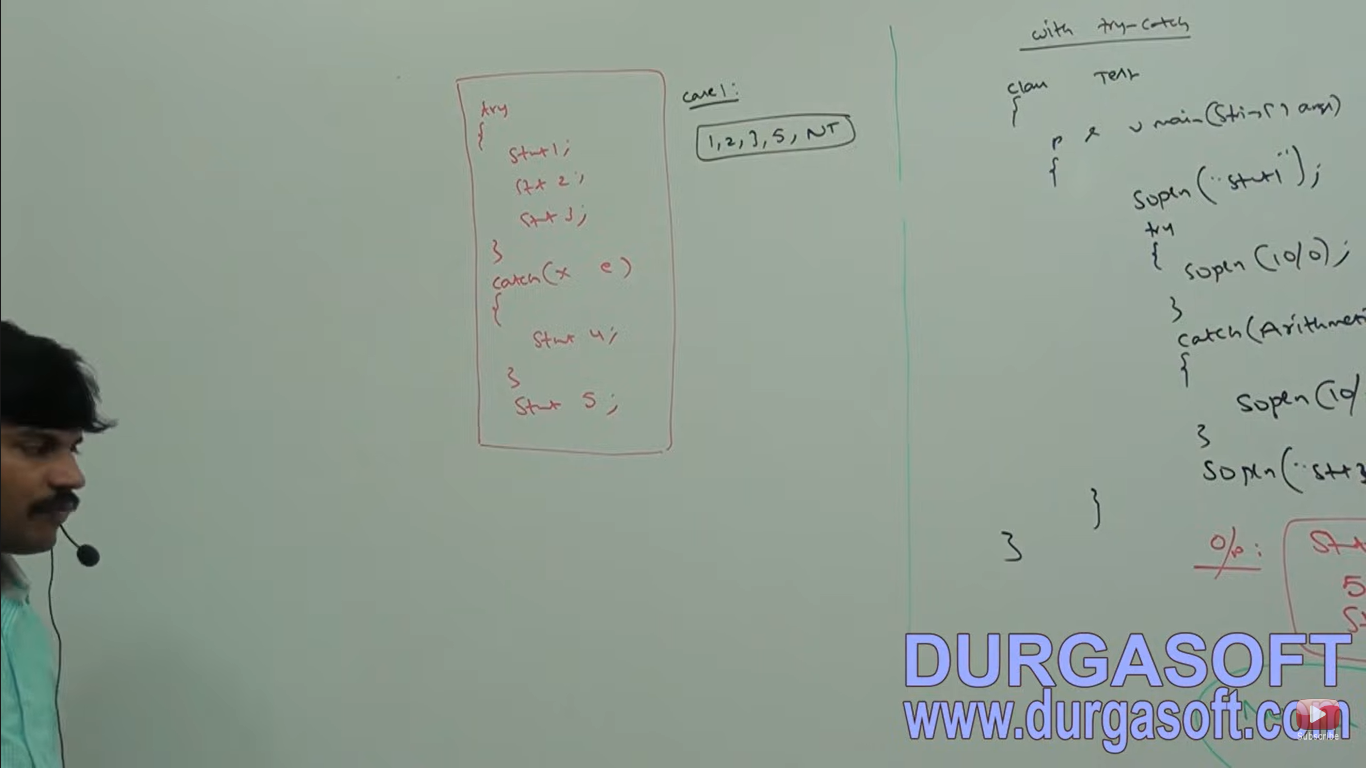 try
{
Stmt 1;
Stmt 2;
Stmt 3;
}
catch(X e)
{
Stmt 4;
}
Stmt 5;
case 1:
1, 2, 3, 5, NT
with try-catch
class Test
{
p s v main(String[] args)
{
Sopln("stmt1");
try
{
Sopln(10/0);
}
catch(Arithmeti
{
Sopln(10/
}
Sopln("stmt3
}
}
O/p:
Stmt
5
St
DURGASOFT
www.durgasoft.com
Subscribe